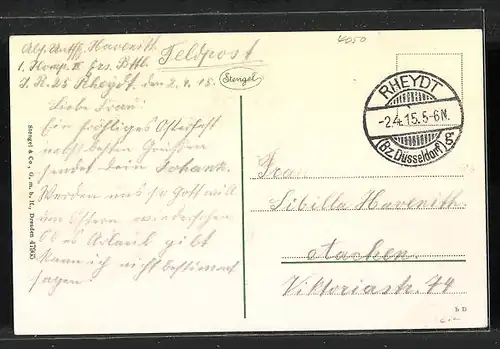 4050
Havenith
1. Komp. II Ers. Btll.
Feldpost
J. R. 25 Rheydt, den 2.4.15.
Stengel
RHEYDT
-2.4.15.5-6N.
(Bz. Düsseldorf) g
Liebe Frau!
Ein fröhliges Osterfest
nebst besten Grüssen
sendet dein Johann.
Werden uns so Gott will
um Ostern wiedersehen
Ob es Urlaub gibt
kann ich nicht bestimmt
sagen.
Stengel & Co., G. m. b. H., Dresden
Frau
Sibilla Havenith
Aachen
Viktoriastr. 74
b D